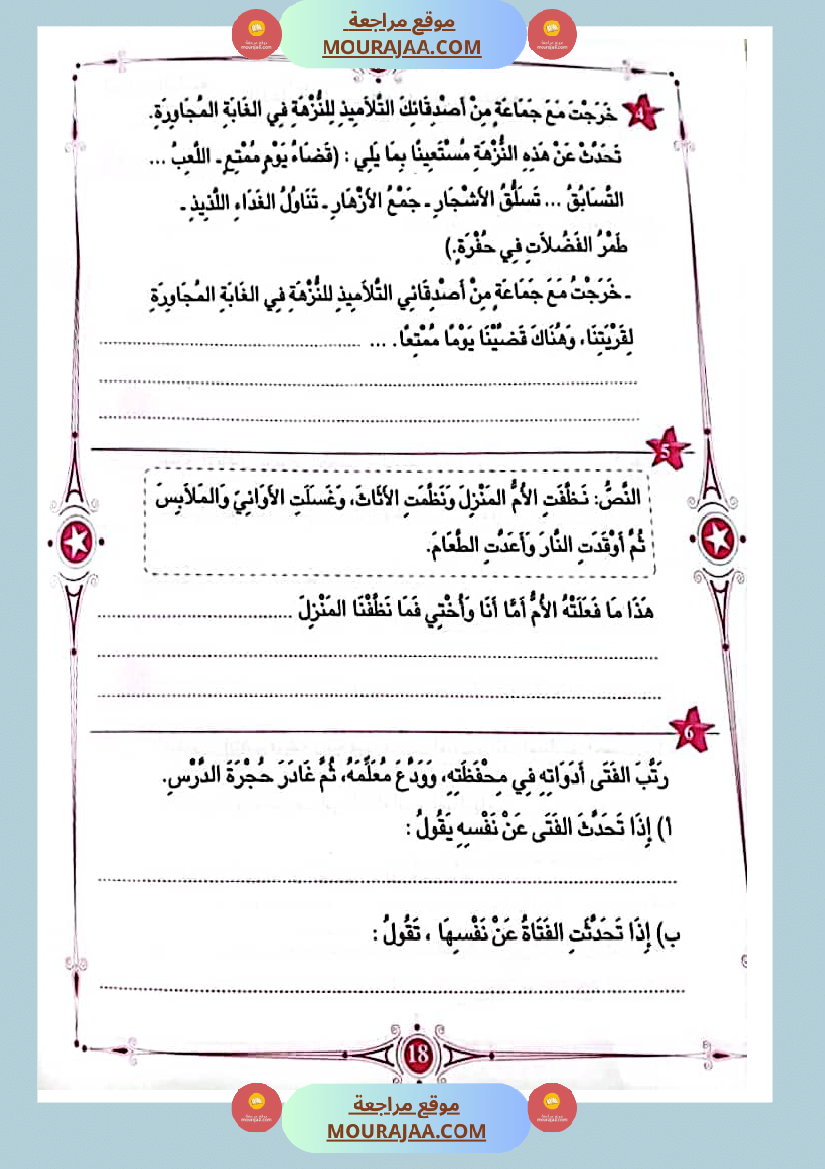 موقع مراجعة
MOURAJAA.COM
4
خَرَجْتَ مَعَ جَمَاعَةٍ مِنْ أَصْدِقَائِكَ التَّلاَمِيذِ لِلنُّزْهَةِ فِي الغَابَةِ المُجَاوِرَةِ.
تَحَدَّثْ عَنْ هَذِهِ النُّزْهَةِ مُسْتَعِينًا بِمَا يَلِي : (قَضَاءُ يَوْمٍ مُمْتِعٍ ـ اللَّعِبُ ...
التَّسَابُقُ ... تَسَلُّقُ الأَشْجَارِ ـ جَمْعُ الأَزْهَارِ ـ تَنَاوُلُ الغَدَاءِ اللَّذِيذِ ـ
طَمْرُ الفَضَلاَتِ فِي حُفْرَةٍ.)
ـ خَرَجْتُ مَعَ جَمَاعَةٍ مِنْ أَصْدِقَائِي التَّلاَمِيذِ لِلنُّزْهَةِ فِي الغَابَةِ المُجَاوِرَةِ
لِقَرْيَتِنَا، وَهُنَاكَ قَضَيْنَا يَوْمًا مُمْتِعًا. ... ............................................
5
النَّصُّ: نَظَّفَتِ الأُمُّ المَنْزِلَ وَنَظَّمَتِ الأَثَاثَ، وَغَسَلَتِ الأَوَانِيَ وَالمَلاَبِسَ
ثُمَّ أَوْقَدَتِ النَّارَ وَأَعَدَّتِ الطَّعَامَ.
هَذَا مَا فَعَلَتْهُ الأُمُّ أَمَّا أَنَا وَأُخْتِي فَمَا نَظَّفْنَا المَنْزِلَ ............................................
6
رَتَّبَ الفَتَى أَدَوَاتِهِ فِي مِحْفَظَتِهِ، وَوَدَّعَ مُعَلِّمَهُ، ثُمَّ غَادَرَ حُجْرَةَ الدَّرْسِ.
ا) إِذَا تَحَدَّثَ الفَتَى عَنْ نَفْسِهِ يَقُولُ :
ب) إِذَا تَحَدَّثَتِ الفَتَاةُ عَنْ نَفْسِهَا ، تَقُولُ :
18
موقع مراجعة
MOURAJAA.COM